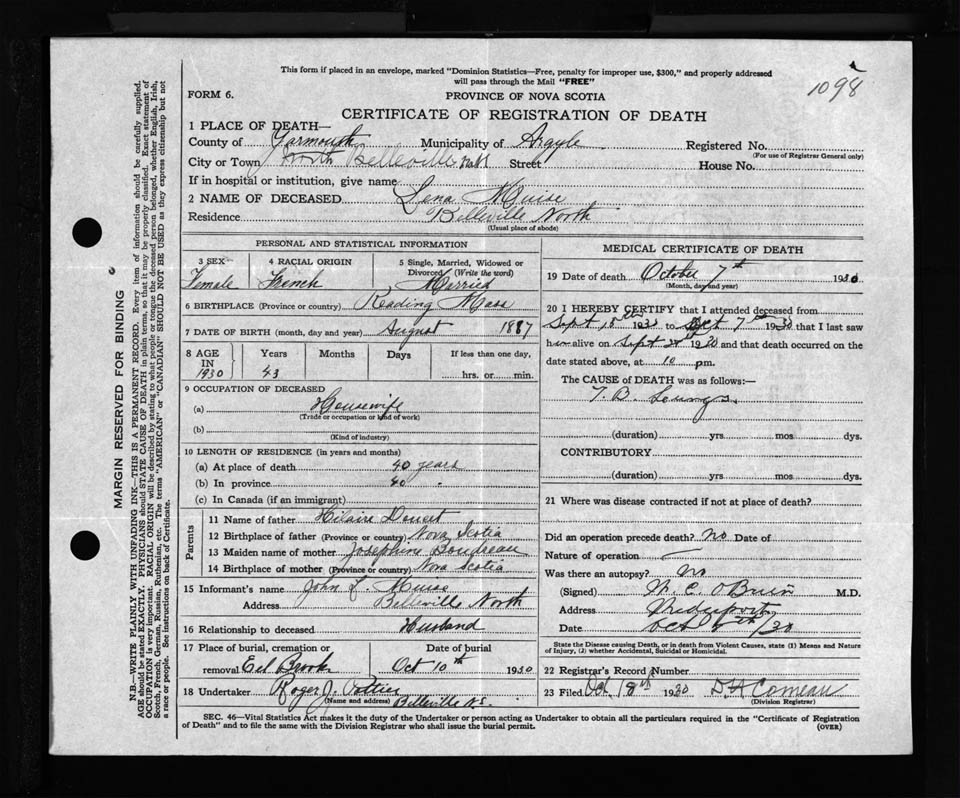 1098
This form if placed in an envelope, marked "Dominion Statistics—Free, penalty for improper use, $300," and properly addressed
will pass through the Mail "FREE"
FORM 6. PROVINCE OF NOVA SCOTIA
CERTIFICATE OF REGISTRATION OF DEATH
1 PLACE OF DEATH—
County of Yarmouth Municipality of Argyle Registered No.
(For use of Registrar General only)
City or Town North Belleville Street House No.
If in hospital or institution, give name
2 NAME OF DECEASED Lena Muise
Residence Belleville North
(Usual place of abode)
PERSONAL AND STATISTICAL INFORMATION
3 SEX 4 RACIAL ORIGIN 5 Single, Married, Widowed or
Divorced (Write the word)
Female French Married
6 BIRTHPLACE (Province or country) Reading Mass
7 DATE OF BIRTH (month, day and year) August 1887
8 AGE IN 1930 Years Months Days If less than one day,
43 hrs. or min.
9 OCCUPATION OF DECEASED
(a) Housewife
(Trade or occupation or kind of work)
(b)
(Kind of industry)
10 LENGTH OF RESIDENCE (in years and months)
(a) At place of death 40 years
(b) In province 40 "
(c) In Canada (if an immigrant)
Parents
11 Name of father Hilaire Doucet
12 Birthplace of father (Province or country) Nova Scotia
13 Maiden name of mother Josephine Boudreau
14 Birthplace of mother (Province or country) Nova Scotia
15 Informant's name John L. Muise
Address Belleville North
16 Relationship to deceased Husband
17 Place of burial, cremation or Date of burial
removal Eel Brook Oct 10th 1930
18 Undertaker Roger J. Pottier
(Name and address) Belleville N.S.
MEDICAL CERTIFICATE OF DEATH
19 Date of death October 7th 1930
(Month, day and year)
20 I HEREBY CERTIFY that I attended deceased from
Sept 15th 1930 to Oct 7th 1930 that I last saw
h alive on Sept 1930 and that death occurred on the
date stated above, at 10 p.m.
The CAUSE of DEATH was as follows:—
T. B. Lungs.
(duration) yrs. mos. dys.
CONTRIBUTORY
(duration) yrs. mos. dys.
21 Where was disease contracted if not at place of death?
Did an operation precede death? no Date of
Nature of operation —
Was there an autopsy? no
(Signed) M. C. O'Brien M.D.
Address
Date Oct /30
State the Disease causing Death, or in death from Violent Causes, state (1) Means and Nature
of Injury, (2) whether Accidental, Suicidal or Homicidal.
22 Registrar's Record Number
23 Filed Oct 18th 1930 D H Comeau
(Division Registrar)
SEC. 46—Vital Statistics Act makes it the duty of the Undertaker or person acting as Undertaker to obtain all the particulars required in the "Certificate of Registration
of Death" and to file the same with the Division Registrar who shall issue the burial permit. (OVER)
MARGIN RESERVED FOR BINDING
N.B.—WRITE PLAINLY WITH UNFADING INK—THIS IS A PERMANENT RECORD. Every item of information should be carefully supplied.
AGE should be stated EXACTLY. PHYSICIANS should STATE CAUSE OF DEATH in plain terms, so that it may be properly classified. Exact statement of
OCCUPATION is very important. RACIAL ORIGIN will be described by stating to what people or tongue the deceased person belonged, whether English, Irish,
Scotch, French, German, Russian, Ruthenian, etc. The terms "AMERICAN" or "CANADIAN" SHOULD NOT BE USED as they express citizenship but not
a race or people. See instructions on back of Certificate.